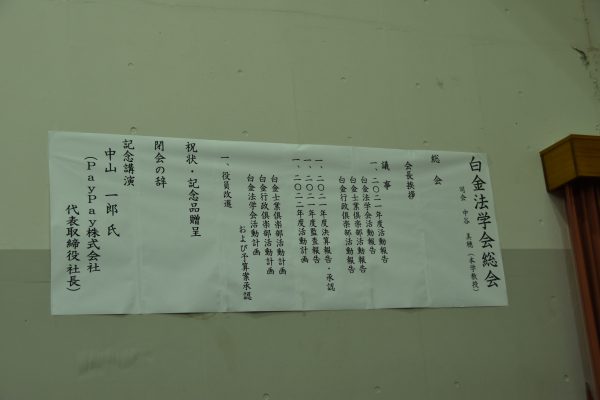 白金法学会総会
司会 中谷 美穂（本学教授）
総会
会長挨拶
議事
一、二〇二一年度活動報告
白金法学会活動報告
白金士業倶楽部活動報告
白金行政倶楽部活動報告
一、二〇二一年度決算報告・承認
一、二〇二一年度監査報告
一、二〇二二年度活動計画
白金士業倶楽部活動計画
白金行政倶楽部活動計画
白金法学会活動計画
および予算案承認
一、役員改選
祝状・記念品贈呈
閉会の辞
記念講演
中山 一郎 氏
（PayPay株式会社
代表取締役社長）